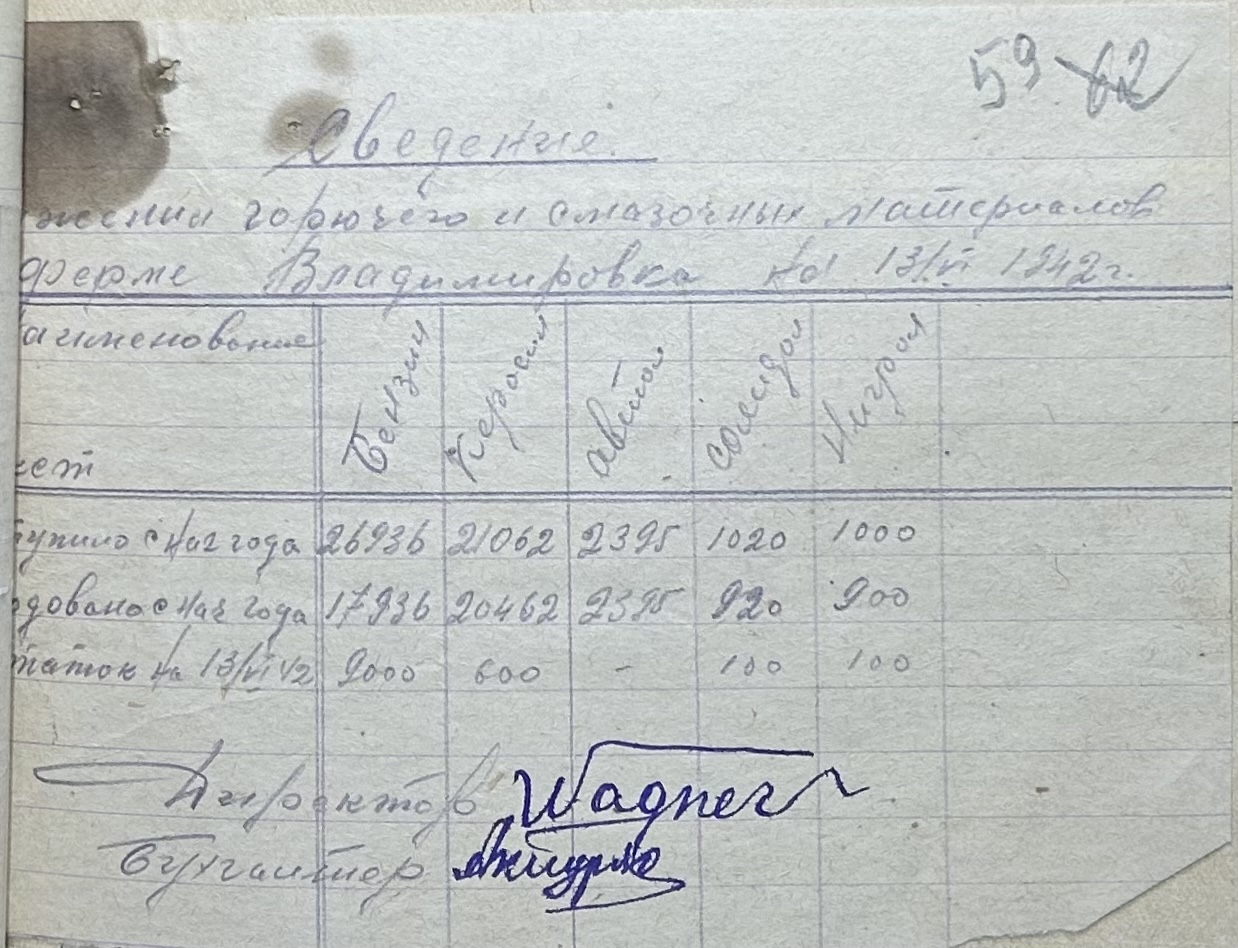 59 62
Сведения.
жения горючего и смазочных материалов
ферме Владимировка на 13/VI 1942 г.
аименование Бензин Керосин автол солидол Нигрол
чет
тупило с нач года 26936 21062 2395 1020 1000
одовано с нач года 17936 20462 2395 920 900
таток на 13/VI 42 9000 600 - 100 100
Директор Wagner
Бухгалтер